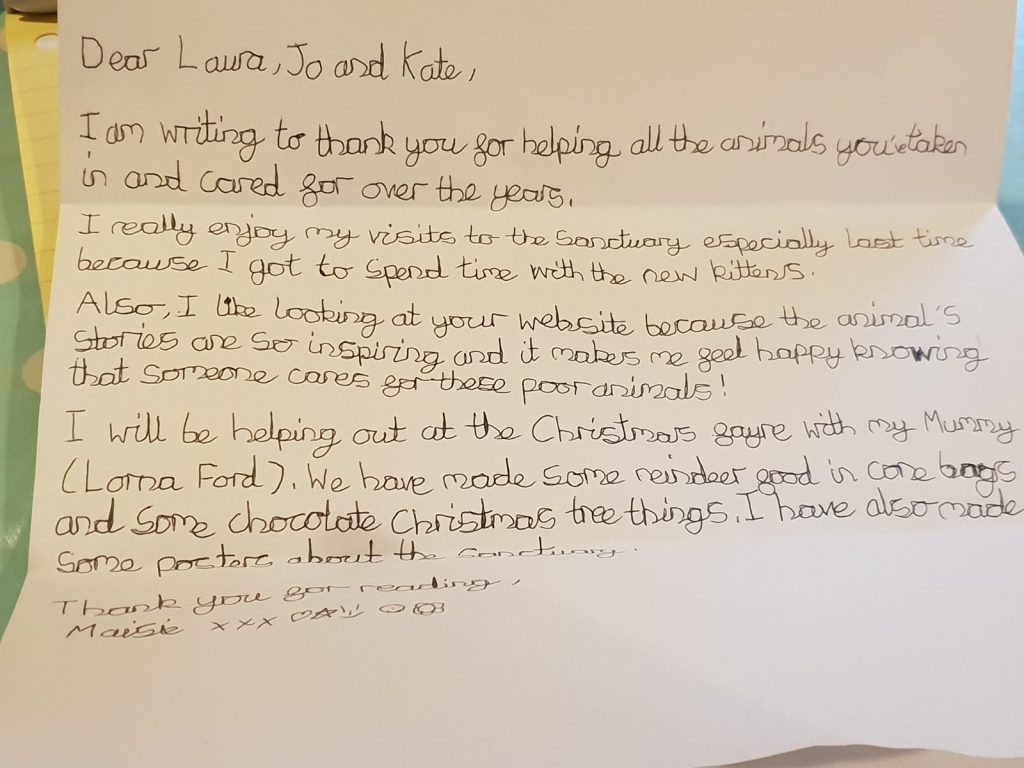 Dear Laura, Jo and Kate,
I am writing to thank you for helping all the animals you've taken
in and cared for over the years.
I really enjoy my visits to the sanctuary especially last time
because I got to spend time with the new kittens.
Also, I like looking at your website because the animal's
stories are so inspiring and it makes me feel happy knowing
that someone cares for these poor animals!
I will be helping out at the Christmas fayre with my Mummy
(Lorna Ford). We have made some reindeer food in cone bags
and some chocolate Christmas tree things. I have also made
some posters about the sanctuary.
Thank you for reading,
Maisie xxx